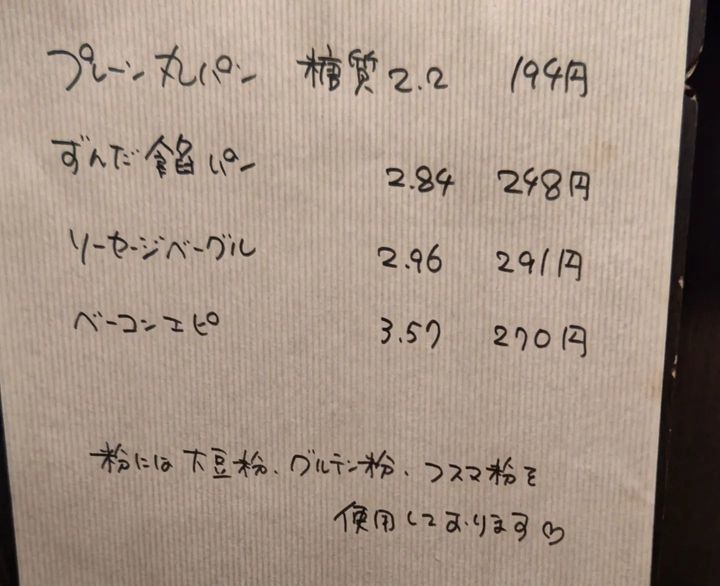 プレーン丸パン 糖質2.2 194円
ずんだ餡パン 2.84 248円
ソーセージベーグル 2.96 291円
ベーコンエピ 3.57 270円
粉には大豆粉、グルテン粉、フスマ粉を
使用しております♡